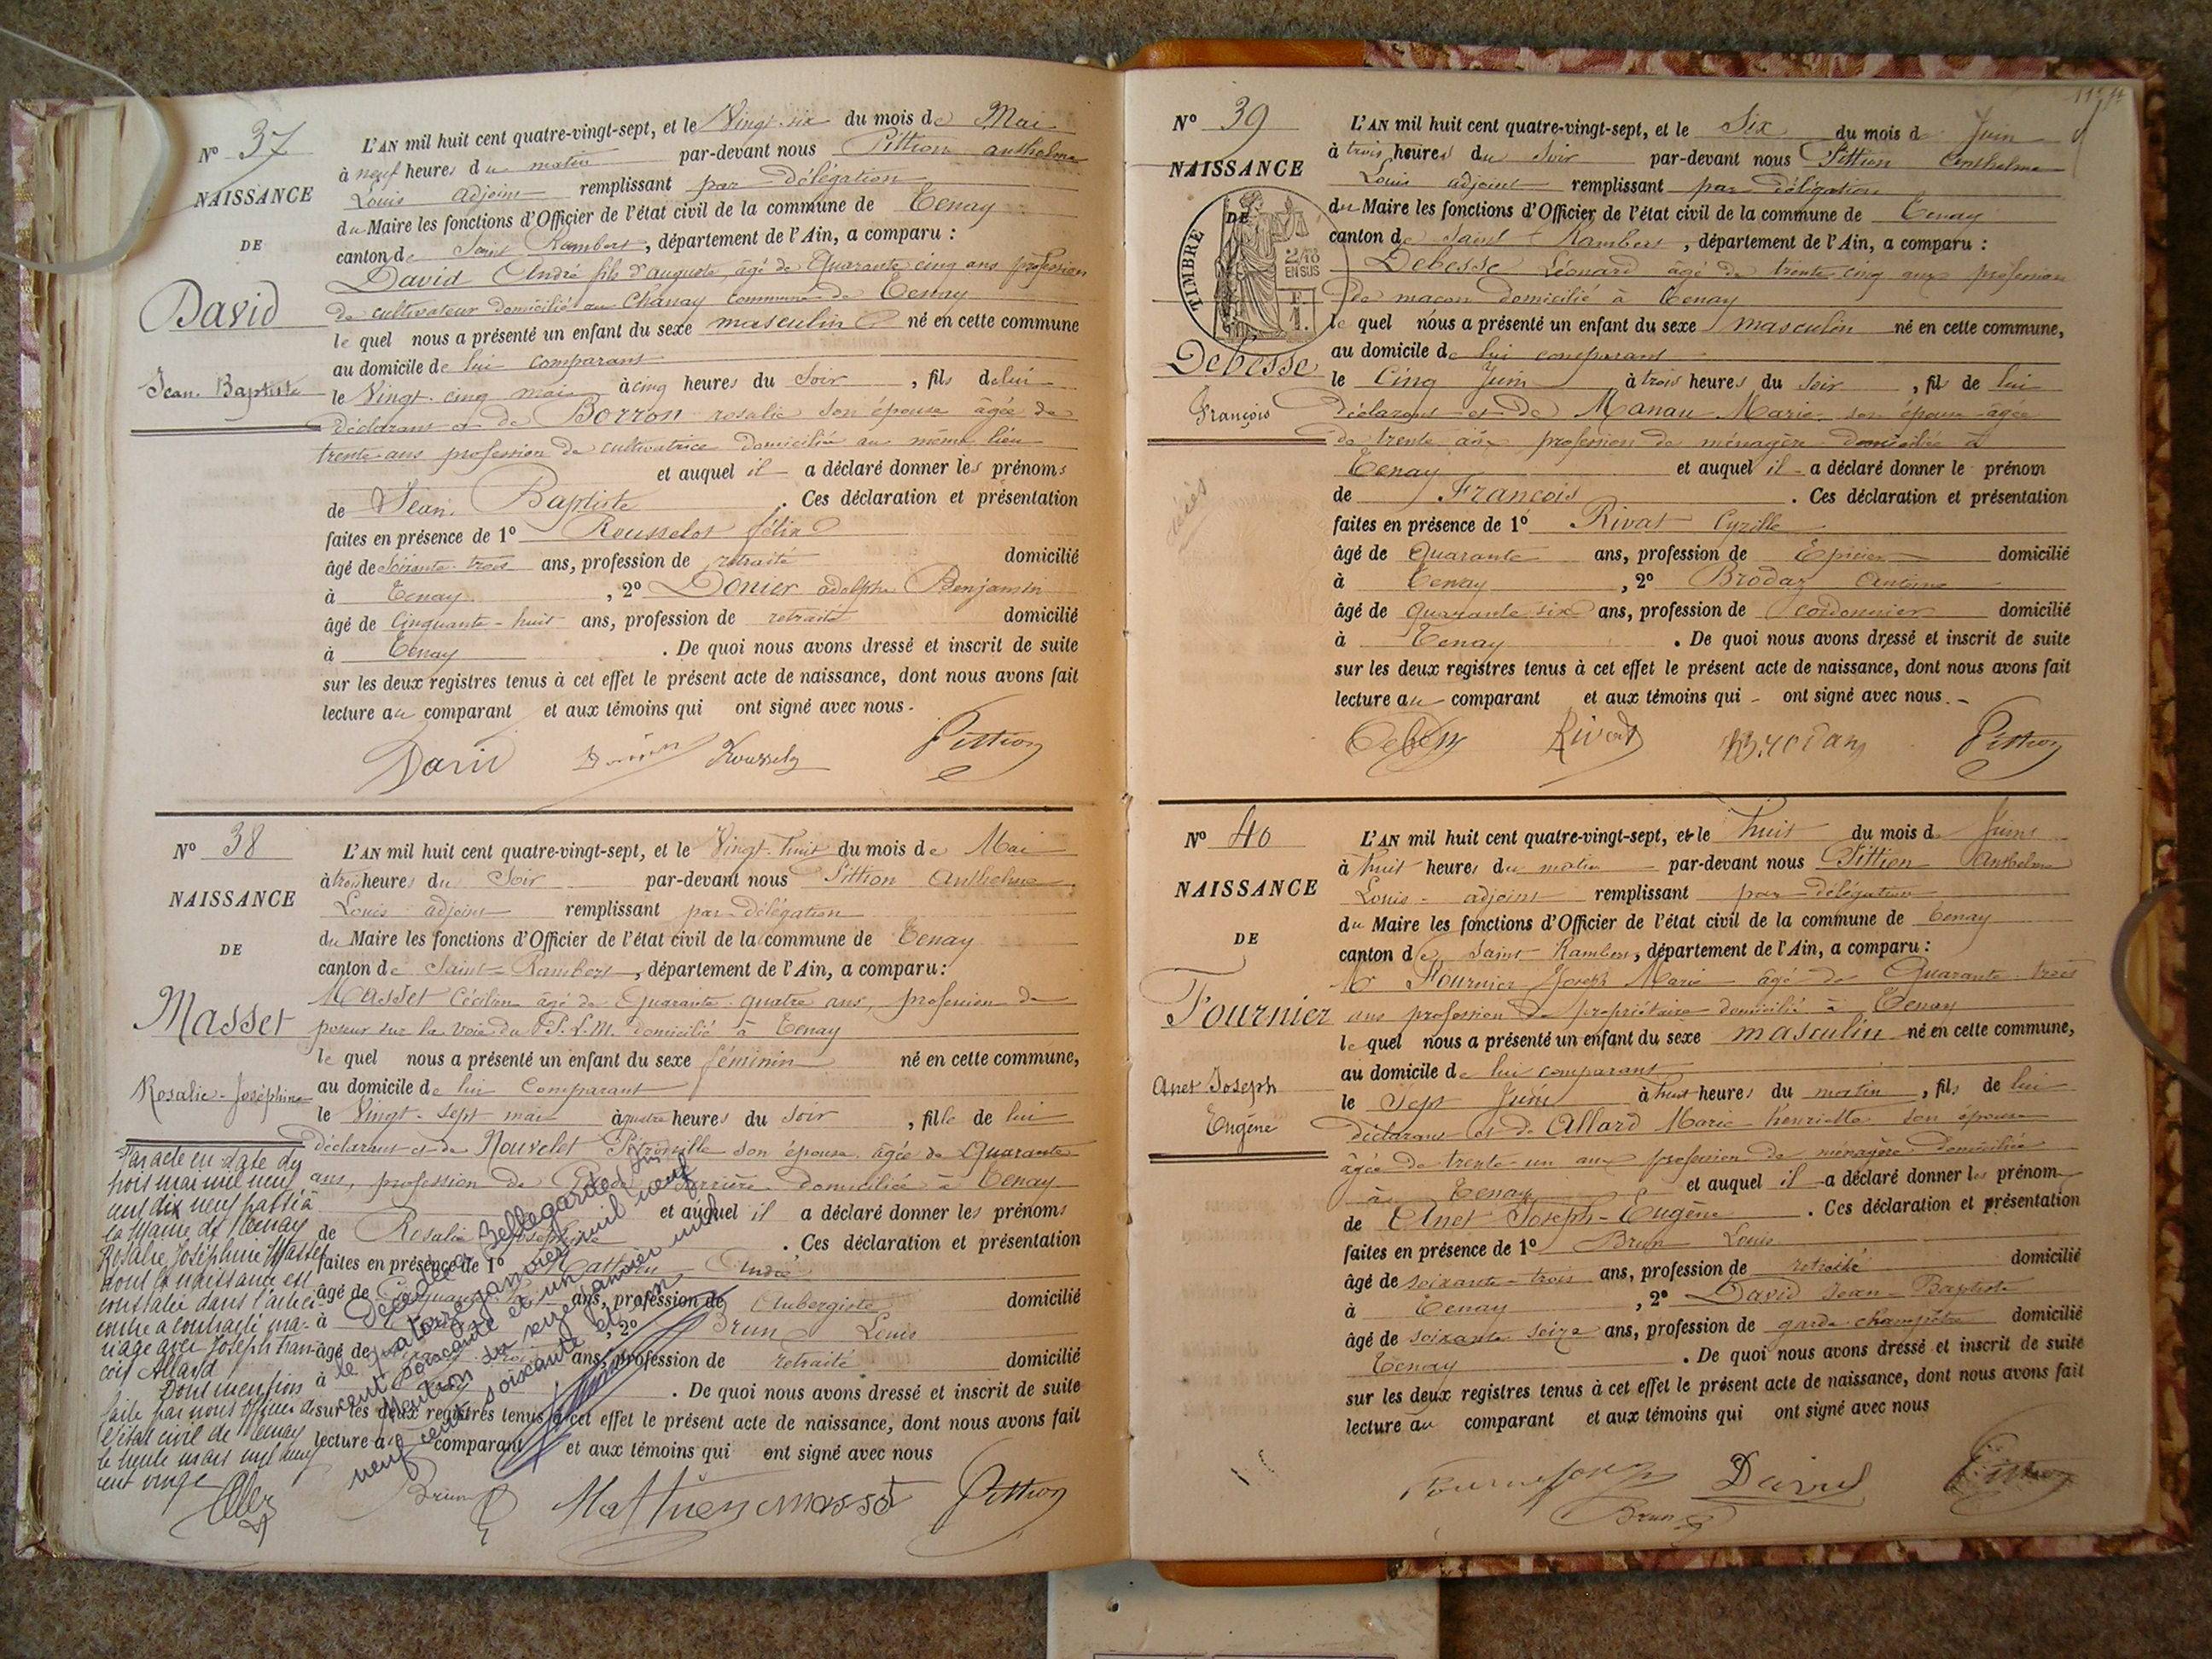 N° 37
NAISSANCE
DE
David
Jean Baptiste
L'AN mil huit cent quatre-vingt-sept, et le Vingt-six du mois de Mai
à neuf heures du matin par-devant nous Pittion anthelme
Louis adjoint remplissant par délégation
du Maire les fonctions d'Officier de l'état civil de la commune de Tenay
canton de Saint Rambert, département de l'Ain, a comparu :
David André fils d'auguste, âgé de Quarante cinq ans profession
de cultivateur domicilié au Chanay commune de Tenay
le quel nous a présenté un enfant du sexe masculin né en cette commune
au domicile de lui comparant
le Vingt-cinq mai à cinq heures du Soir, fils de lui
déclarant et de Borron rosalie son épouse âgée de
trente ans profession de cultivatrice domiciliée au même lieu
et auquel il a déclaré donner les prénoms
de Jean Baptiste. Ces déclaration et présentation
faites en présence de 1° Rousselot félix
âgé de Soixante-trois ans, profession de retraité domicilié
à Tenay, 2° Donier adolphe Benjamin
âgé de Cinquante-huit ans, profession de retraité domicilié
à Tenay. De quoi nous avons dressé et inscrit de suite
sur les deux registres tenus à cet effet le présent acte de naissance, dont nous avons fait
lecture au comparant et aux témoins qui ont signé avec nous.
David Rousselot Pittion
N° 38
NAISSANCE
DE
Masset
Rosalie-Joséphine
L'AN mil huit cent quatre-vingt-sept, et le Vingt-huit du mois de Mai
à trois heures du Soir par-devant nous Pittion Anthelme
Louis adjoint remplissant par délégation
du Maire les fonctions d'Officier de l'état civil de la commune de Tenay
canton de Saint-Rambert, département de l'Ain, a comparu :
Masset Cécilien âgé de Quarante-quatre ans, profession de
poseur sur la voie du P.L.M. domicilié à Tenay
le quel nous a présenté un enfant du sexe féminin né en cette commune,
au domicile de lui Comparant
le Vingt-sept mai à quatre heures du Soir, fille de lui
déclarant et de Nouvelet son épouse âgée de Quarante
ans, profession de domiciliée à Tenay
et auquel il a déclaré donner les prénoms
de Rosalie Joséphine. Ces déclaration et présentation
faites en présence de 1° Mathieu André
âgé de ans, profession de Aubergiste domicilié
à, 2° Brun Louis
âgé de ans, profession de retraité domicilié
à. De quoi nous avons dressé et inscrit de suite
sur les deux registres tenus à cet effet le présent acte de naissance, dont nous avons fait
lecture au comparant et aux témoins qui ont signé avec nous
Brun Mathieu masset Pittion
Par acte en date du
trois mai mil neuf
cent dix neuf passé à
la Mairie de Tenay
Rosalie Joséphine Masset
dont la naissance est
constatée dans l'acte ci-
contre a contracté ma-
riage avec Joseph Fran-
çois Allard
Dont mention
faite par nous officier de
l'état civil de Tenay
le trente mars mil neuf
cent vingt
Décédée à Bellegarde (Ain)
le quatorze janvier mil neuf
cent soixante et un
Mention du seize janvier mil
neuf cent soixante et un
N° 39
NAISSANCE
DE
TIMBRE
2/10
EN SUS
F.
1.
Debesse
François
décès
L'AN mil huit cent quatre-vingt-sept, et le Six du mois d Juin
à trois heures du Soir par-devant nous Pittion Anthelme
Louis adjoint remplissant par délégation
du Maire les fonctions d'Officier de l'état civil de la commune de Tenay
canton de Saint Rambert, département de l'Ain, a comparu :
Debesse Léonard âgé de trente-cinq ans profession
de maçon domicilié à Tenay
le quel nous a présenté un enfant du sexe masculin né en cette commune,
au domicile de lui comparant
le Cinq Juin à trois heures du Soir, fils de lui
déclarant et de Manau Marie son épouse âgée
de trente ans profession de ménagère domiciliée à
Tenay et auquel il a déclaré donner le prénom
de François. Ces déclaration et présentation
faites en présence de 1° Rivat Cyrille
âgé de Quarante ans, profession de Epicier domicilié
à Tenay, 2° Brodaz Antoine
âgé de Quarante six ans, profession de cordonnier domicilié
à Tenay. De quoi nous avons dressé et inscrit de suite
sur les deux registres tenus à cet effet le présent acte de naissance, dont nous avons fait
lecture au comparant et aux témoins qui ont signé avec nous.
Rivat Brodaz Pittion
N° 40
NAISSANCE
DE
Fournier
Anet Joseph
Eugène
L'AN mil huit cent quatre-vingt-sept, et le huit du mois d Juin
à huit heures du matin par-devant nous Pittion Anthelme
Louis adjoint remplissant par délégation
du Maire les fonctions d'Officier de l'état civil de la commune de Tenay
canton de Saint Rambert, département de l'Ain, a comparu :
Mr Fournier Joseph Marie âgé de Quarante-trois
ans profession de propriétaire domicilié à Tenay
le quel nous a présenté un enfant du sexe masculin né en cette commune,
au domicile de lui comparant
le Sept Juin à huit heures du matin, fils de lui
déclarant et de Allard Marie henriette son épouse
âgée de trente-un ans profession de ménagère domiciliée
à Tenay et auquel il a déclaré donner les prénom
de Anet Joseph-Eugène. Ces déclaration et présentation
faites en présence de 1° Brun Louis
âgé de soixante-trois ans, profession de retraité domicilié
à Tenay, 2° David Jean-Baptiste
âgé de soixante seize ans, profession de garde-champêtre domicilié
Tenay. De quoi nous avons dressé et inscrit de suite
sur les deux registres tenus à cet effet le présent acte de naissance, dont nous avons fait
lecture au comparant et aux témoins qui ont signé avec nous
David Pittion
Brun